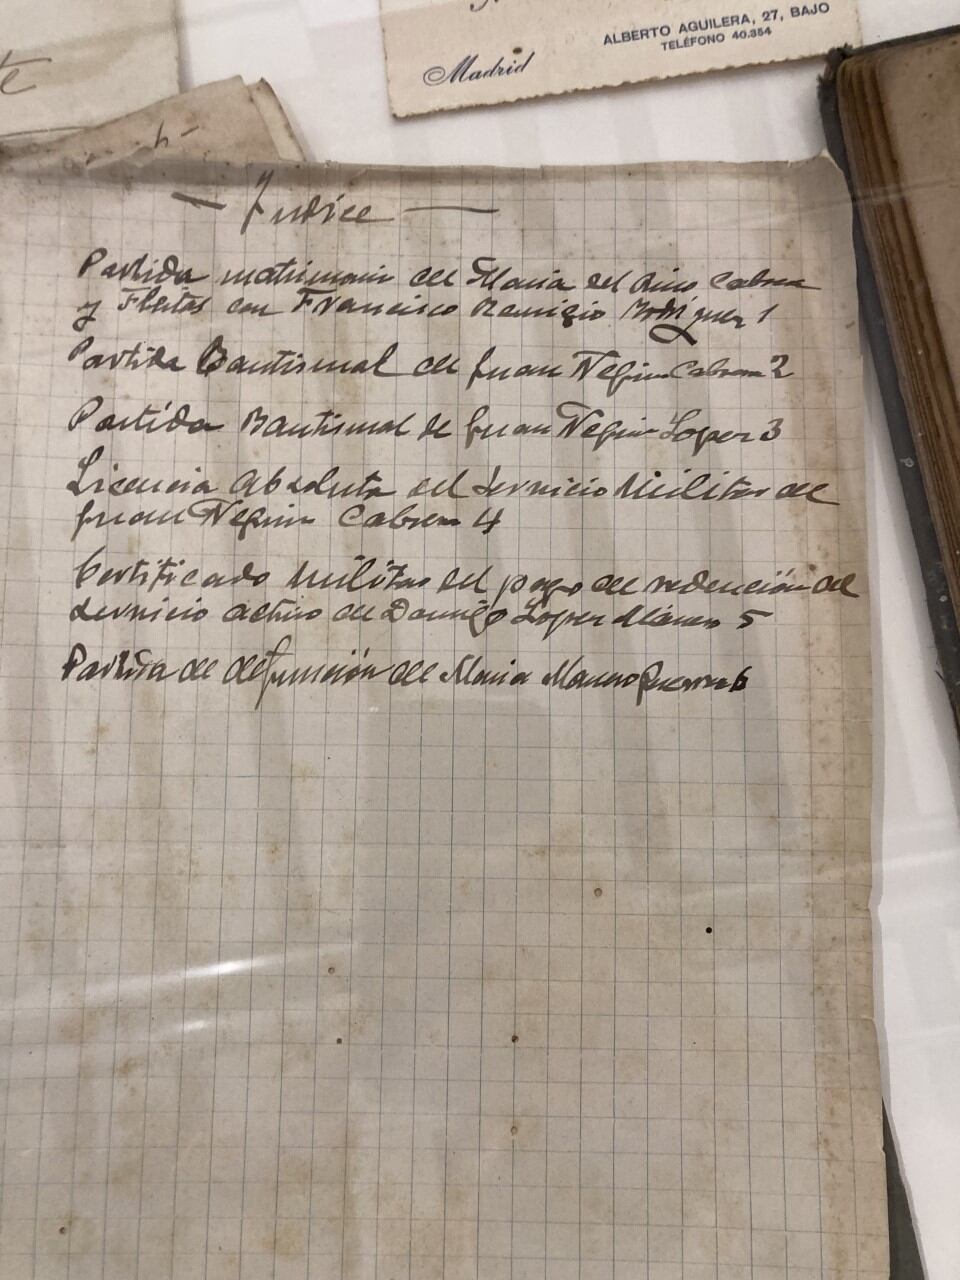 te
ALBERTO AGUILERA, 27, BAJO
TELÉFONO 40.354
Madrid
— Indice —
Partida matrimonio de Maria del Pino Cabrera
y Fleitas con Francisco Remigio Rodriguez 1
Partida Bautismal de Juan Negrin Cabrera 2
Partida Bautismal de Juan Negrin Lopez 3
Licencia Absoluta del Servicio Militar de
Juan Negrin Cabrera 4
Certificado Militar del pago de redención del
servicio activo de Domingo Lopez Marrero 5
Partida de defunción de Maria Marrero Guerra 6